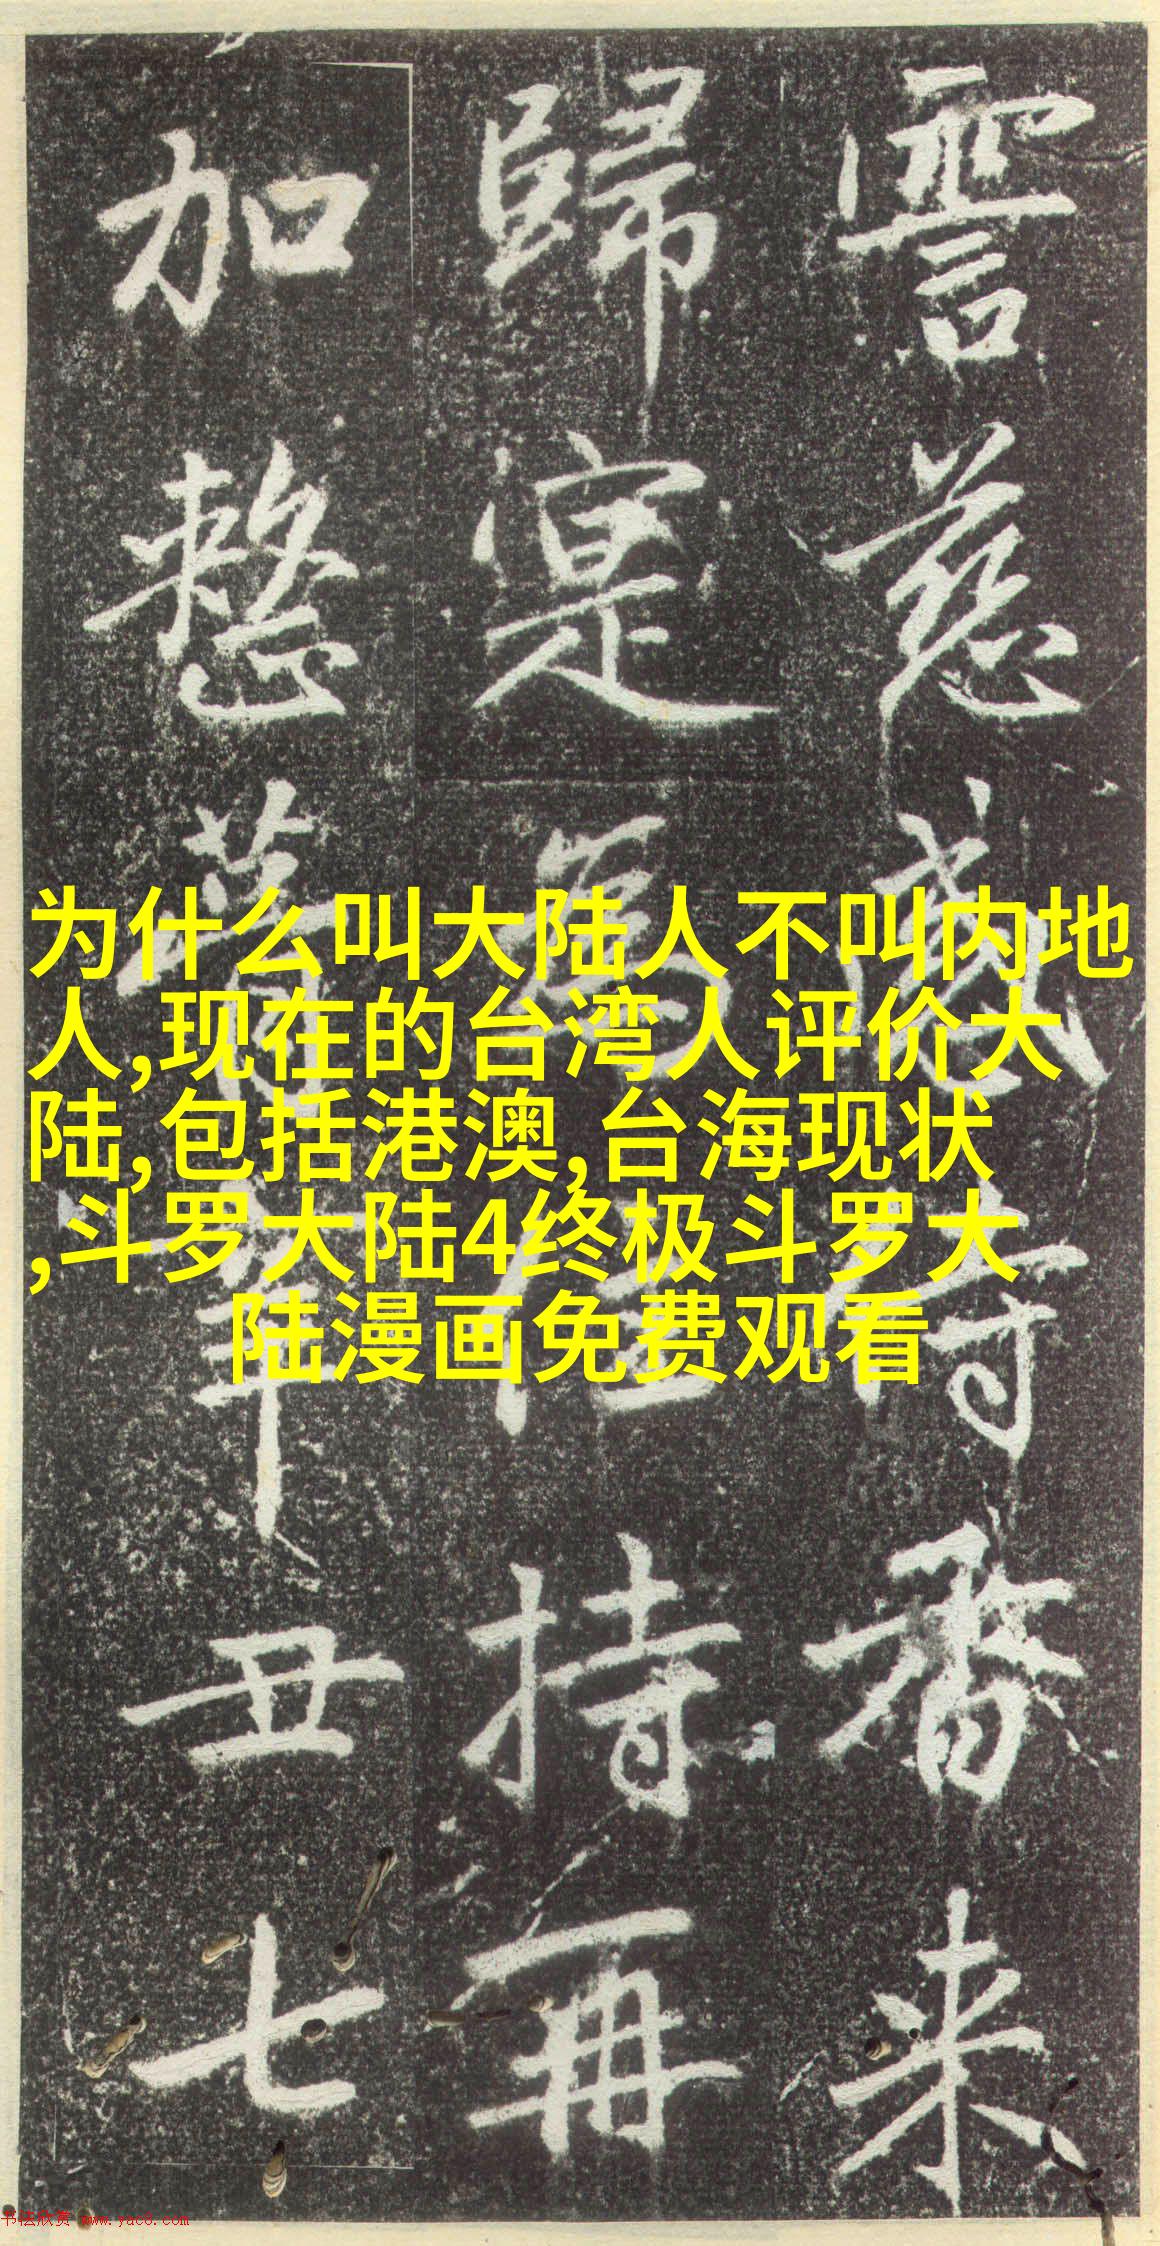 霅慈感番来
歸寔為住持再
加整葺辛丑七
为什么叫大陆人不叫内地
人,现在的台湾人评价大
陆,包括港澳,台海现状
,斗罗大陆4终极斗罗大
陆漫画免费观看
书法欣赏 www.yac8.com